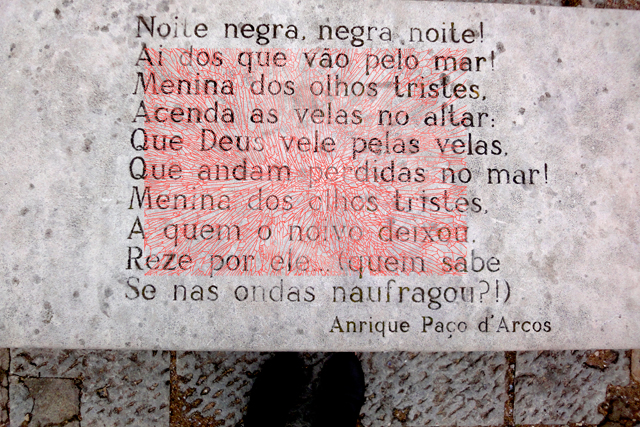 Noite negra, negra noite!
Ai dos que vão pelo mar!
Menina dos olhos tristes,
Acenda as velas no altar:
Que Deus vele pelas velas,
Que andam perdidas no mar!
Menina dos olhos tristes,
A quem o noivo deixou,
Reze por ele... (quem sabe
Se nas ondas naufragou?!)
Anrique Paço d'Arcos